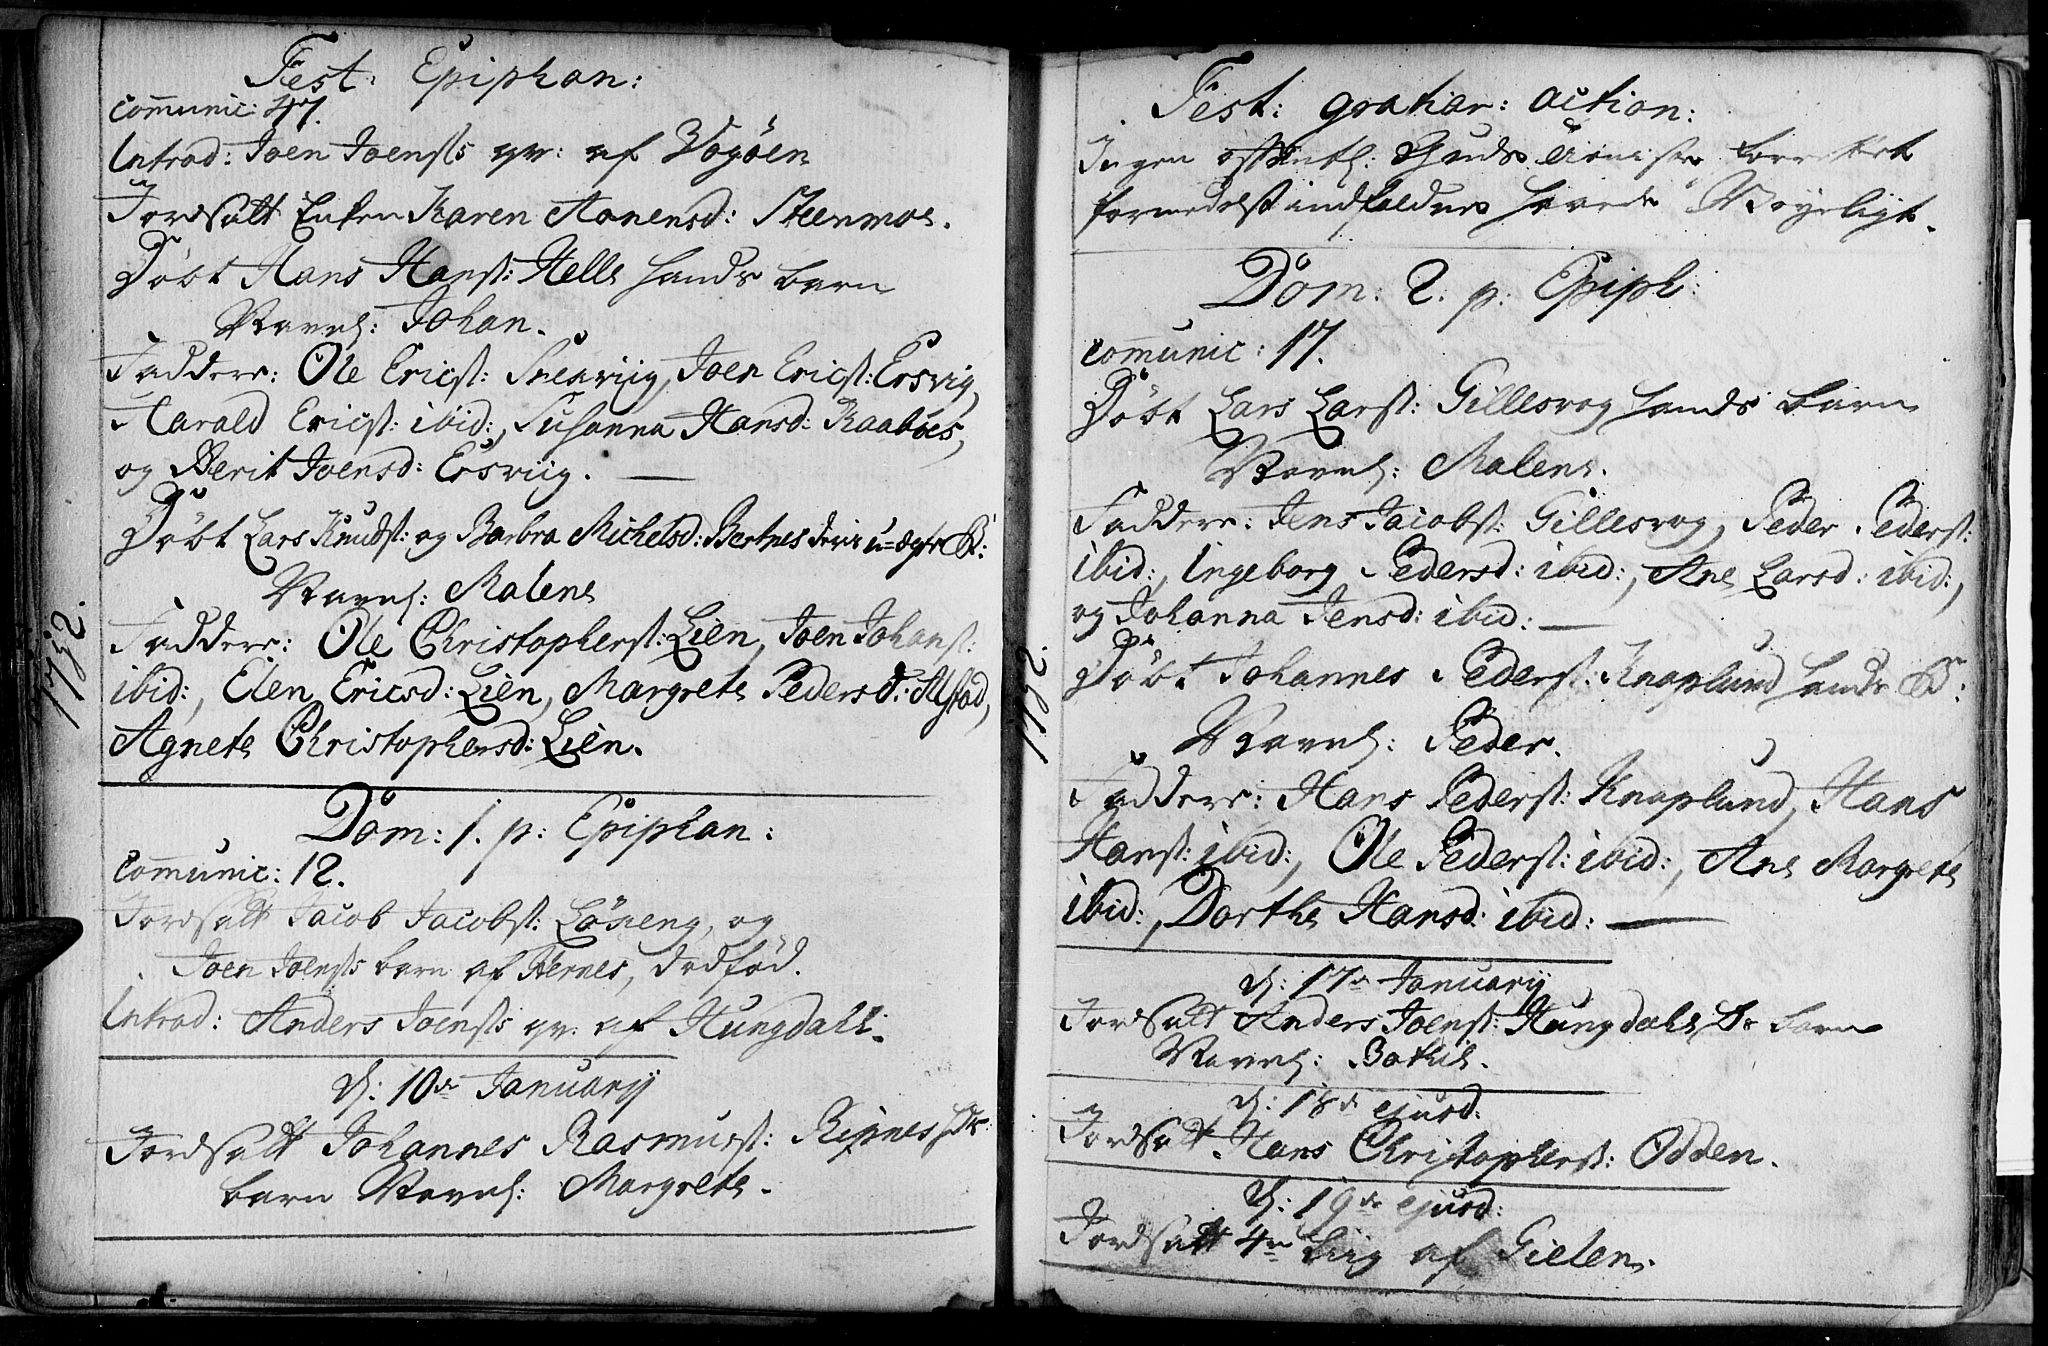 Fest: Epiphan:
Com̄unic: 47.
Introd: Joen Joensøs qv: af Vogöen
Jordsatt Enken Karen Aanensd: Steenmoe.
Döbt Hans Hanst: Helle hands barn
Navnl: Johan.
Faddere: Ole Ericst: Snevviig, Joen Ericst: Ersvig,
Harald Ericst: ibid:, Susanna Hansd: Kaaboes,
og Berit Joensd: Ersviig. —
Döbt Lars Knudst: og Barbra Michelsd: Bertnes deris u=ægte B:
Navnl: Malene
Faddere: Ole Christopherst: Lien, Joen Johanst:
ibid:, Elen Ericsd: Lien, Margrete Pedersd: Alstad,
Agnete Christophersd: Lien.
1752.
Dom: 1. p: Epiphan:
Com̄unic: 12.
Jordsatt Jacob Jacobst: Löseng, og
Joen Joensøs barn af Hernes, dødfød.
Introd: Anders Joensøs qv: af Hungdall.
d: 10de Januarij
Jordsatt Johannes Rasmusst: Ripnes hds:
barn Navnl: Margrete.
Fest: gratiar: action:
Ingen offentl: Guds tieniste forrettet
formedelst indfaldne haarde Vejrligt.
Dom: 2. p: Epiph:
Com̄unic: 17.
Döbt Lars Larst: Gillesvog hands barn
Navnl: Malene.
Faddere: Jens Jacobst: Gillesvog, Peder Pederst:
ibid:, Ingeborg Pedersd: ibid:, Ane Larsd: ibid:,
og Johanna Jensd: ibid: —
Döbt Johannes Pederst: Knaplund hands B:
Navnl: Peder.
Faddere: Hans Pederst: Knaplund, Hans
Hanst: ibid:, Ole Pederst: ibid:, Ane Margrete
ibid:, Dorthe Hansd: ibid: —
1752.
d: 17de Januarij
Jordsatt Anders Joenst: Hungdahls barn
Navnl: Bothil.
d: 18de ejusd:
Jordsatt Hans Christopherst: Odden.
d: 19de ejusd:
Jordsatt 4re Liig af Gielen.